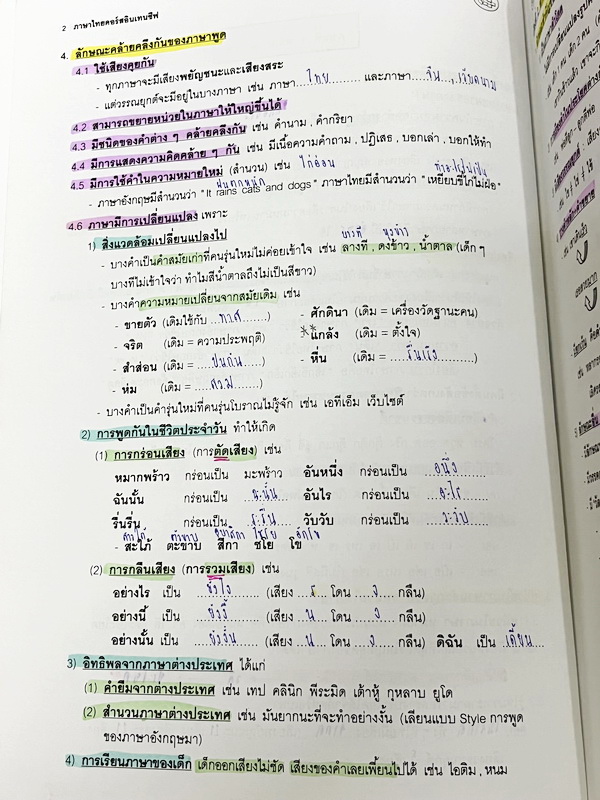 2 ภาษาไทยคอร์สอินเทนซีฟ
4. ลักษณะคล้ายคลึงกันของภาษาพูด
4.1 ใช้เสียงคุยกัน
- ทุกภาษาจะมีเสียงพยัญชนะและเสียงสระ
- แต่วรรณยุกต์จะมีอยู่ในบางภาษา เช่น ภาษา...ไทย.......... และภาษา...จีน..,..เวียดนาม
4.2 สามารถขยายหน่วยในภาษาให้ใหญ่ขึ้นได้
4.3 มีชนิดของคำต่าง ๆ คล้ายคลึงกัน เช่น คำนาม , คำกริยา
4.4 มีการแสดงความคิดคล้าย ๆ กัน เช่น มีเนื้อความคำถาม , ปฏิเสธ , บอกเล่า , บอกให้ทำ
4.5 มีการใช้คำในความหมายใหม่ (สำนวน) เช่น ไก่อ่อน
ฝนตกหนัก
- ภาษาอังกฤษมีสำนวนว่า "It rains cats and dogs" ภาษาไทยมีสำนวนว่า "เหยียบขี้ไก่ไม่ฝ่อ"
4.6 ภาษามีการเปลี่ยนแปลง เพราะ
1) สิ่งแวดล้อมเปลี่ยนแปลงไป
บางที
- บางคำเป็นคำสมัยเก่าที่คนรุ่นใหม่ไม่ค่อยเข้าใจ เช่น ลางที , ดงข้าว , น้ำตาล (เด็ก ๆ
บางทีไม่เข้าใจว่า ทำไมสีน้ำตาลถึงไม่เป็นสีขาว)
- บางคำความหมายเปลี่ยนจากสมัยเดิม เช่น
- ขายตัว (เดิมใช้กับ ...ทาส......) - ศักดินา (เดิม = เครื่องวัดฐานะคน)
- จริต (เดิม = ความประพฤติ) ** แกล้ง (เดิม = ตั้งใจ)
- สำส่อน (เดิม = ...ปนกัน......) - หื่น (เดิม = ....รื่นเริง.......)
- ห่ม (เดิม = ....สวม.......)
- บางคำเป็นคำรุ่นใหม่ที่คนรุ่นโบราณไม่รู้จัก เช่น เอทีเอ็ม เว็บไซต์
2) การพูดกันในชีวิตประจำวัน ทำให้เกิด
(1) การกร่อนเสียง (การตัดเสียง) เช่น
หมากพร้าว กร่อนเป็น มะพร้าว อันหนึ่ง กร่อนเป็น ....อนึ่ง.......
ฉันนั้น กร่อนเป็น ....ฉะนั้น.... อันไร กร่อนเป็น ....อะไร.......
รื่นรื่น กร่อนเป็น ....ระรื่น.... วับวับ กร่อนเป็น ....วะวับ.......
- สะใภ้ ตะขาบ สีกา ชโย โข
(2) การกลืนเสียง (การรวมเสียง) เช่น
อย่างไร เป็น ....ยังไง...... (เสียง ...ร... โดน ....ง.... กลืน)
อย่างนี้ เป็น ....ยังงี้...... (เสียง ...น... โดน ....ง.... กลืน)
อย่างนั้น เป็น ....ยังงั้น...... (เสียง ...น... โดน ....ง.... กลืน) ดิฉัน เป็น ...เดี๊ยน...
3) อิทธิพลจากภาษาต่างประเทศ ได้แก่
(1) คำยืมจากต่างประเทศ เช่น เทป คลินิก พีระมิด เต้าหู้ กุหลาบ ยูโด
(2) สำนวนภาษาต่างประเทศ เช่น มันยากนะที่จะทำอย่างงั้น (เลียนแบบ Style การพูด
ของภาษาอังกฤษมา)
4) การเรียนภาษาของเด็ก เด็กออกเสียงไม่ชัด เสียงของคำเลยเพี้ยนไปได้ เช่น ไอติม , หนม